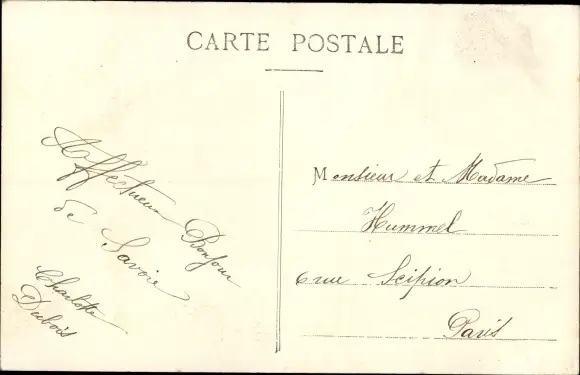 CARTE POSTALE
Affectueux Bonjour
de Savoie
Charlotte
Dubois
Monsieur et Madame
Hummel
6 rue Scipion
Paris